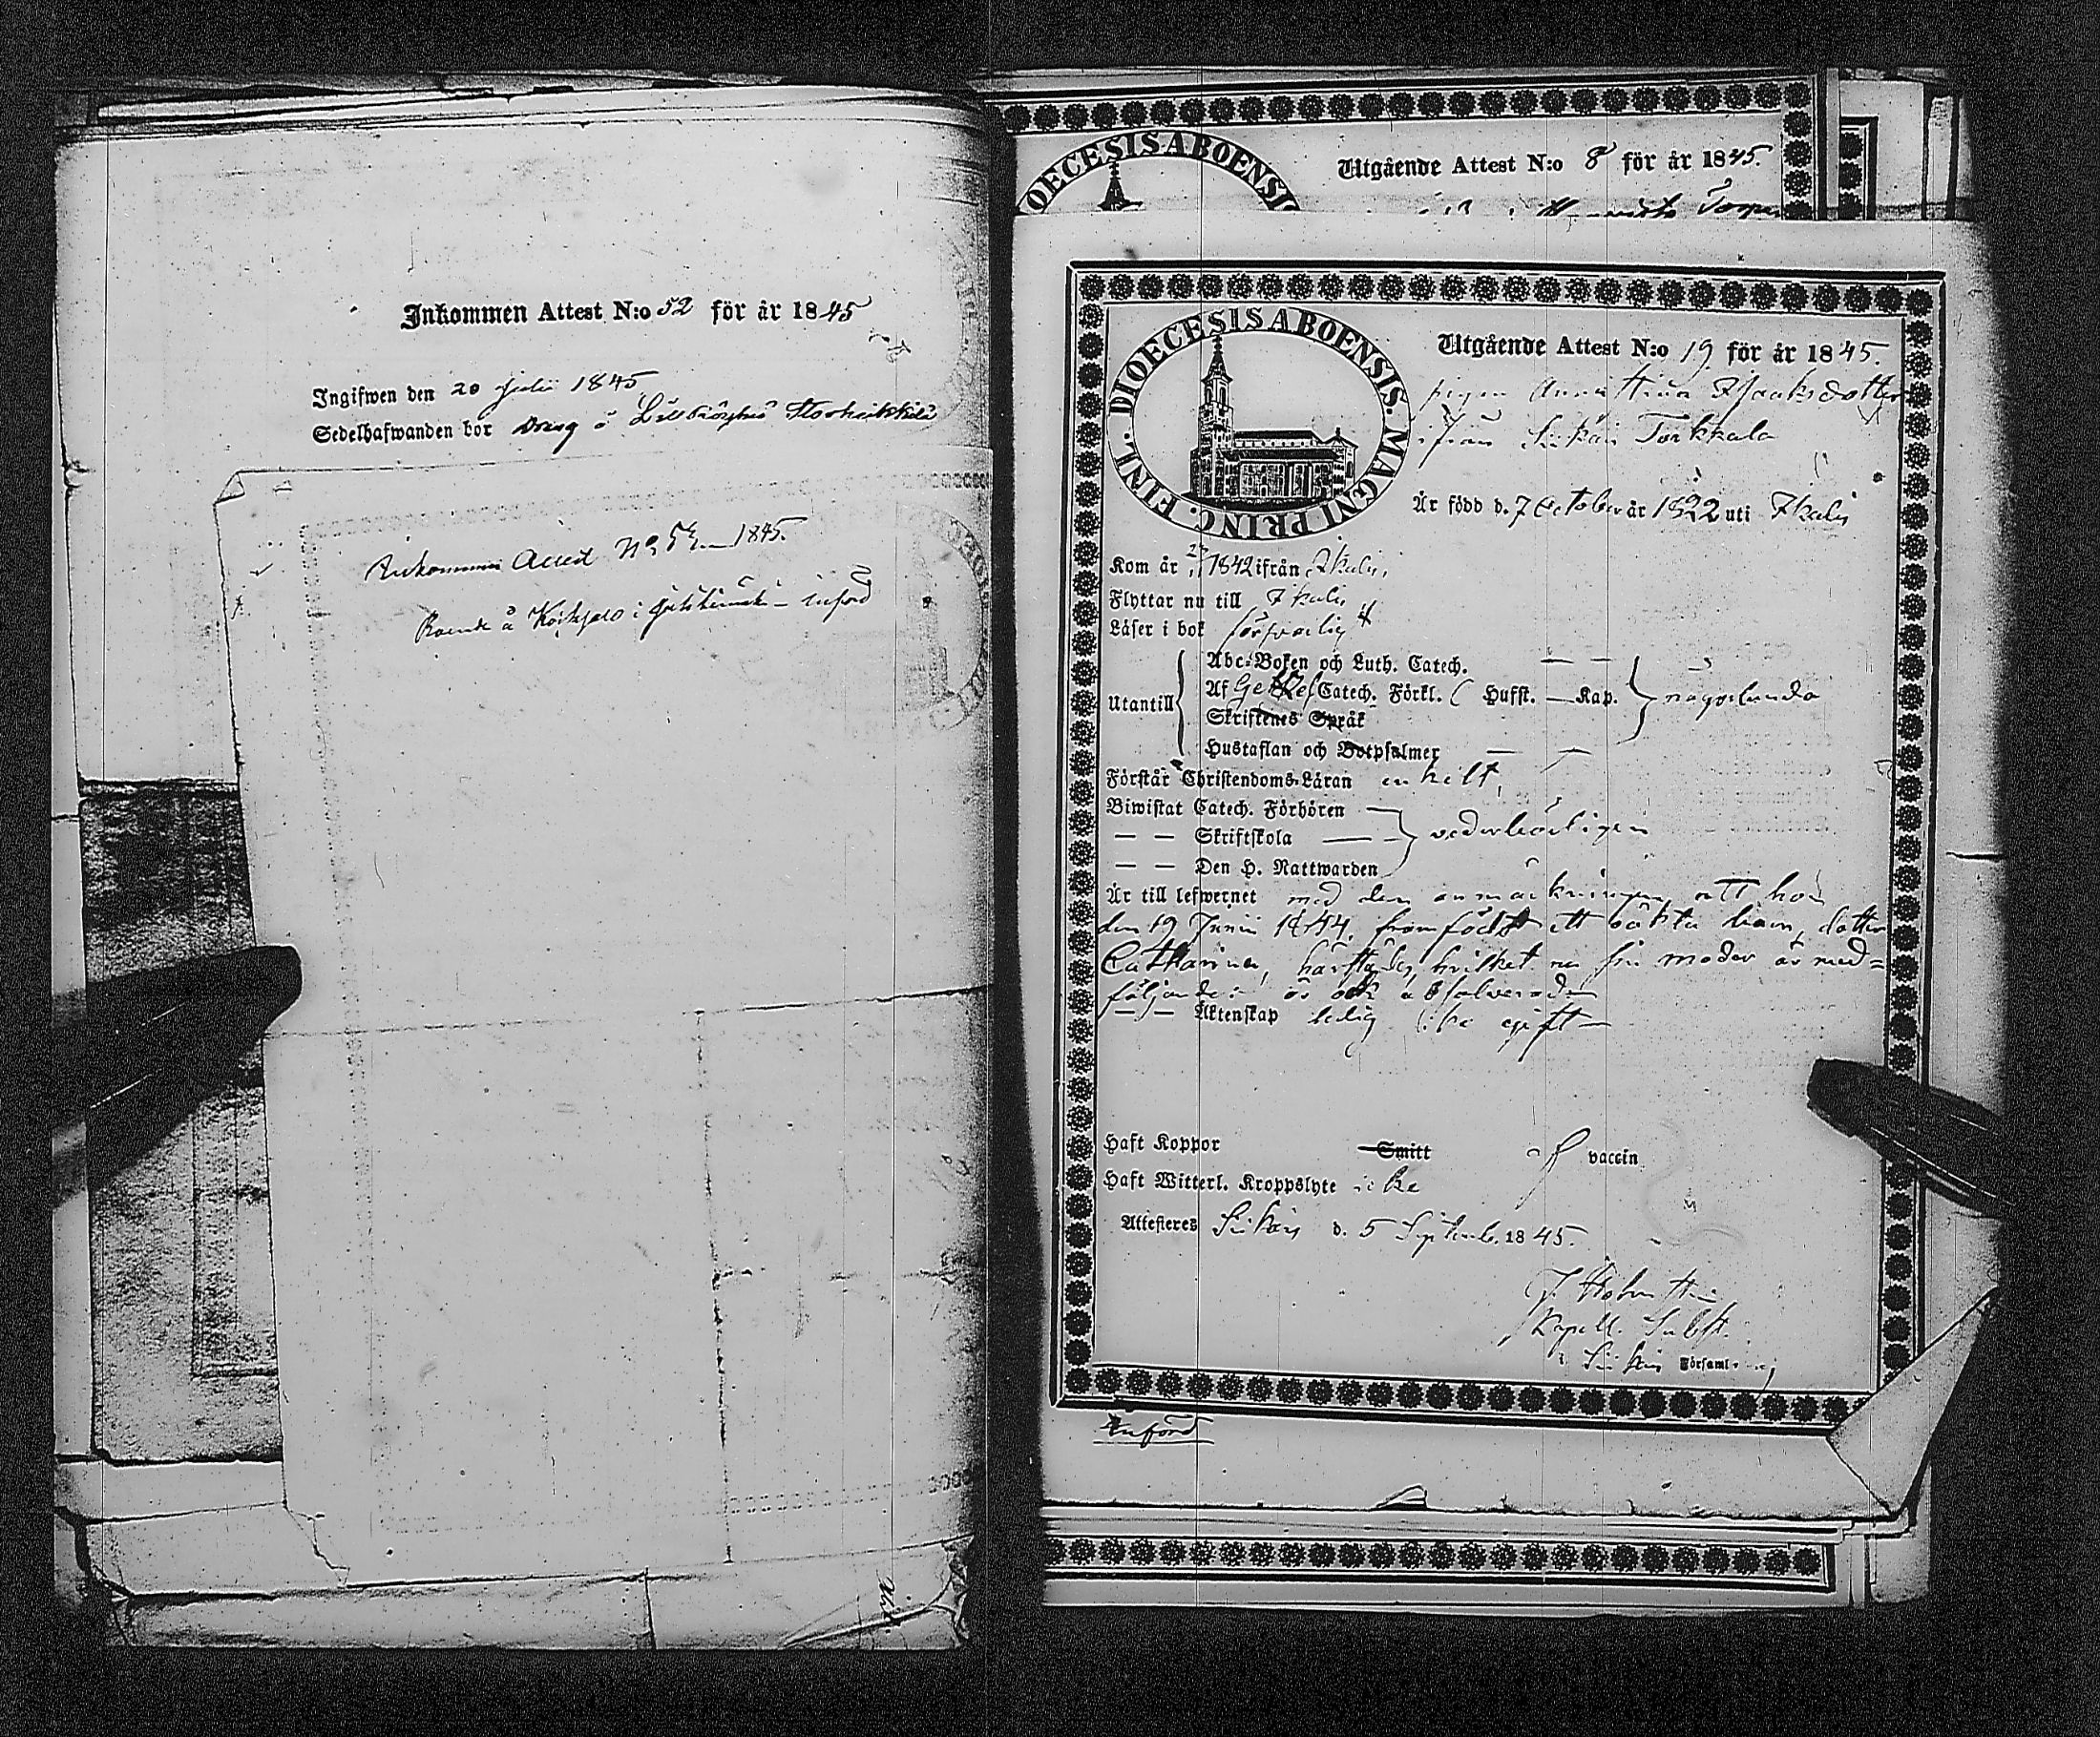 Inkommen Attest N:o 52 för år 1845
Ingifwen den 20 Julii 1845
Sedelhafwanden bor Dräng å
Inkommen Attest No 53 1845.
Boende å i införd
DIOECESIS ABOENSIS
Utgående Attest N:o 8 för år 1845.
DIOECESIS ABOENSIS. MAGNI PRINC. FINL.
Utgående Attest N:o 19 för år 1845.
pigan Anna Stina Isaksdotter
ifrån Siikais Torkkala
Är född d. 7 October år 1822 uti Ikalis
Kom år 1842 ifrån Ikalis,
Flyttar nu till Ikalis
Läser i bok försvarligt
Abc-Boken och Luth. Catech. — —
Utantill Af Catech. Förkl. ( Hufst. — Kap. någorlunda
Skriftenes Språk
Hustaflan och Botpsalmer — —
Förstår Christendoms-Läran enkelt,
Biwistat Catech. Förhören —
— — Skriftskola — — vederbörligen
— — Den H. Nattwarden
Är till lefwernet med den anmärkningen att hon
den 19 Junii 1844, framfödt ett oäkta barn, dotter
Catharina, härstädes, hvilket nu sin moder är med=
följande: är ock absolverad
— — Äktenskap ledig
Haft Koppor Smitt af vaccin
Haft Witterl. Kroppslyte icke
Attesteres Siikais d. 5 Septemb. 1845.
Kapell. Subst.
i Siikais Församling
Införd